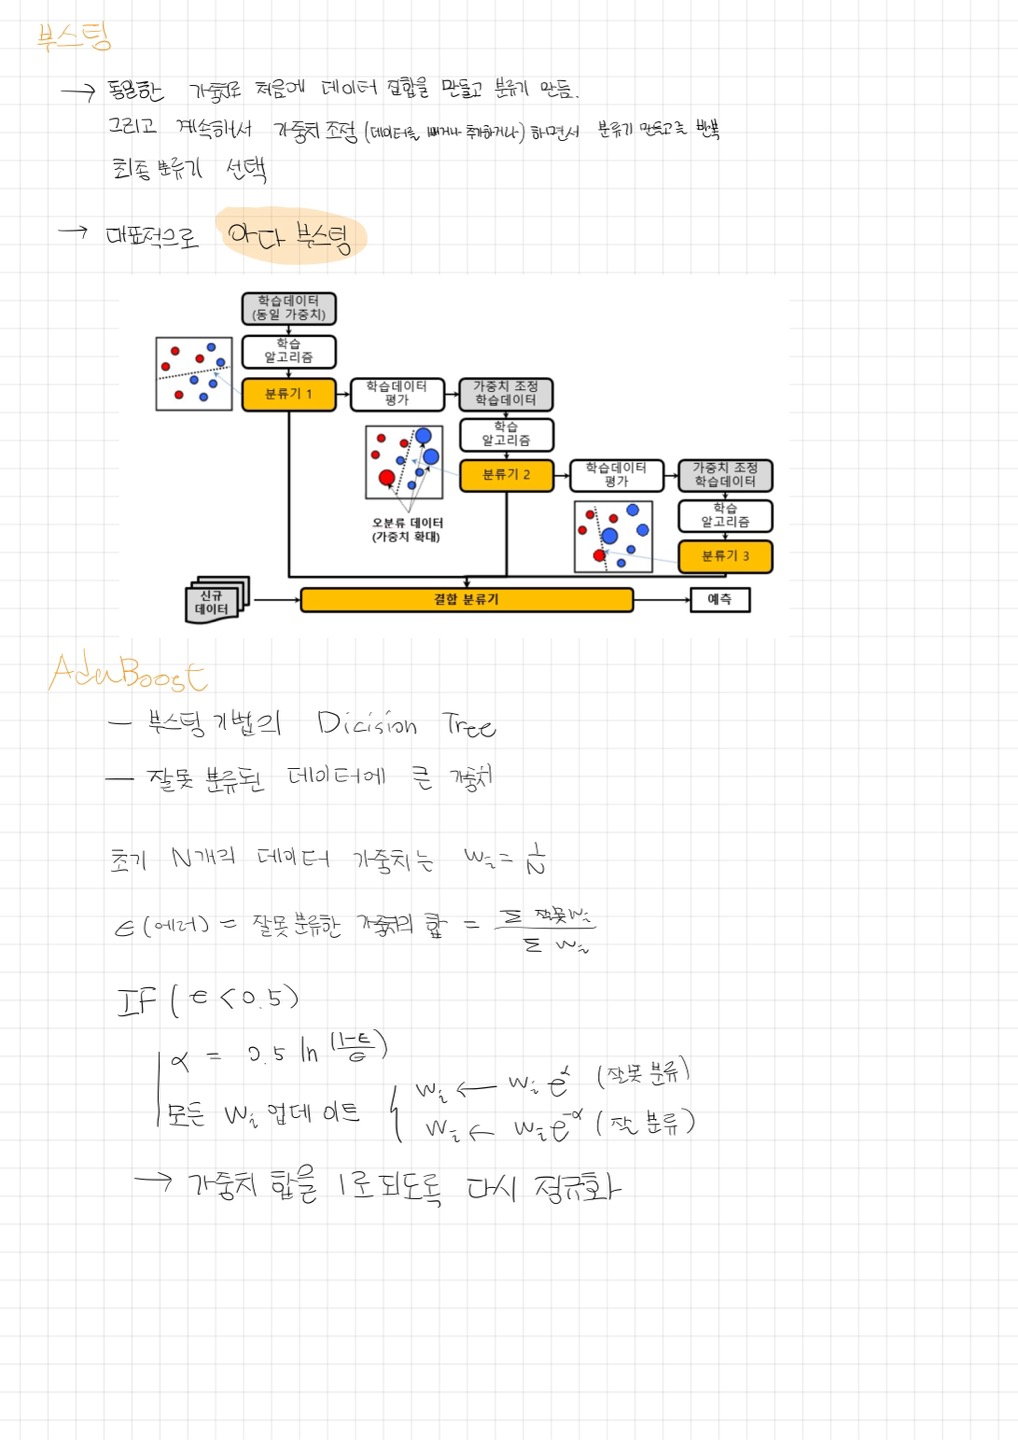 부스팅
→ 동일한 가중치로 처음에 데이터 집합을 만들고 분류기 만듬.
그리고 계속해서 가중치 조정 (데이터를 빼거나 추가하거나) 하면서 분류기 만들고를 반복
최종 분류기 선택
→ 대표적으로 아다 부스팅
학습데이터
(동일 가중치)
학습
알고리즘
분류기 1
학습데이터
평가
가중치 조정
학습데이터
학습
알고리즘
분류기 2
학습데이터
평가
가중치 조정
학습데이터
오분류 데이터
(가중치 확대)
학습
알고리즘
분류기 3
신규
데이터
결합 분류기
예측
AdaBoost
- 부스팅 기법의 Dicision Tree
- 잘못 분류된 데이터에 큰 가중치
초기 N개의 데이터 가중치는 wᵢ = 1/N
ε(에러) = 잘못 분류한 가중치의 합 = Σ 잘못wᵢ / Σ wᵢ
IF ( ε < 0.5)
α = 0.5 ln (1-ε/ε)
모든 wᵢ 업데이트 { wᵢ ← wᵢ e^α (잘못 분류)
wᵢ ← wᵢ e^-α (잘 분류)
→ 가중치 합을 1로 되도록 다시 정규화